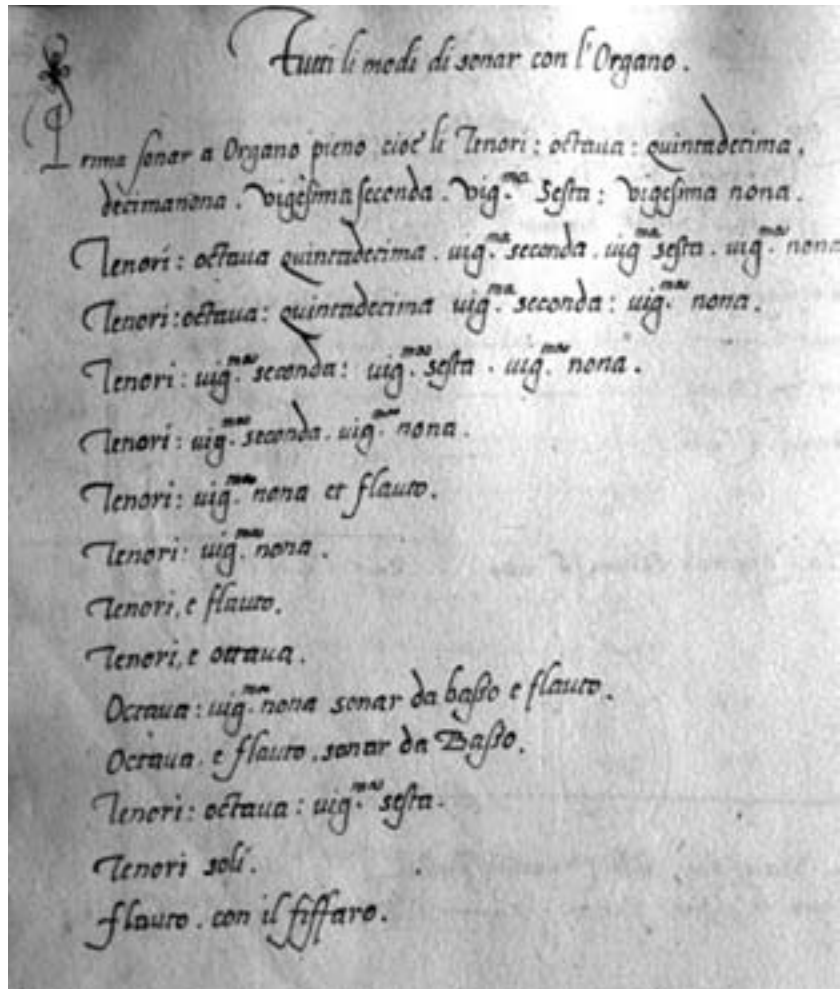 Tutti li modi di sonar con l'Organo.
Prima sonar a Organo pieno cioè li Tenori: octaua: quintadecima,
decimanona. vigesima seconda. vig.ma Sesta: vigesima nona.
Tenori: octaua quintadecima. uig.ma seconda. uig.ma sesta. uig.ma nona
Tenori: octaua: quintadecima uig.ma seconda: uig.ma nona.
Tenori: uig.ma seconda: uig.ma sesta. uig.ma nona.
Tenori: uig.ma seconda. uig.ma nona.
Tenori: uig.ma nona et flauto.
Tenori: uig.ma nona.
Tenori, e flauto.
Tenori, e ottaua.
Octaua: uig.ma nona sonar da basso e flauto.
Octaua, e flauto, sonar da Basso.
Tenori: octaua: uig.ma sesta.
Tenori soli.
flauto. con il fiffaro.